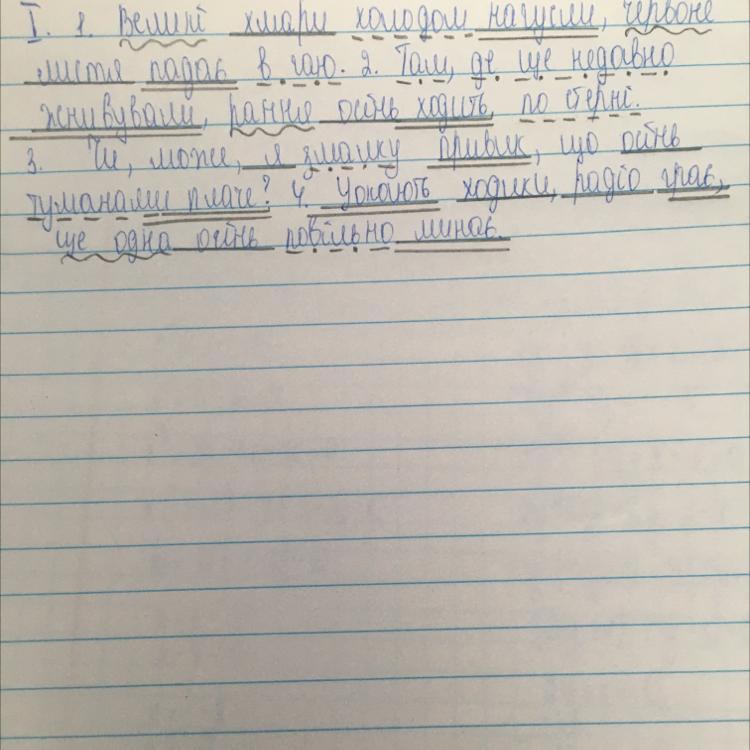 I. 1. Великі хмари холодом нагусли, червоне
листя падає в гаю. 2. Там, де ще недавно
жнивували, рання осінь ходить по стерні.
3. Чи, може, я змалку привик, що осінь
туманами плаче? 4. Цокають ходики, радіо грає,
ще одна осінь повільно минає.